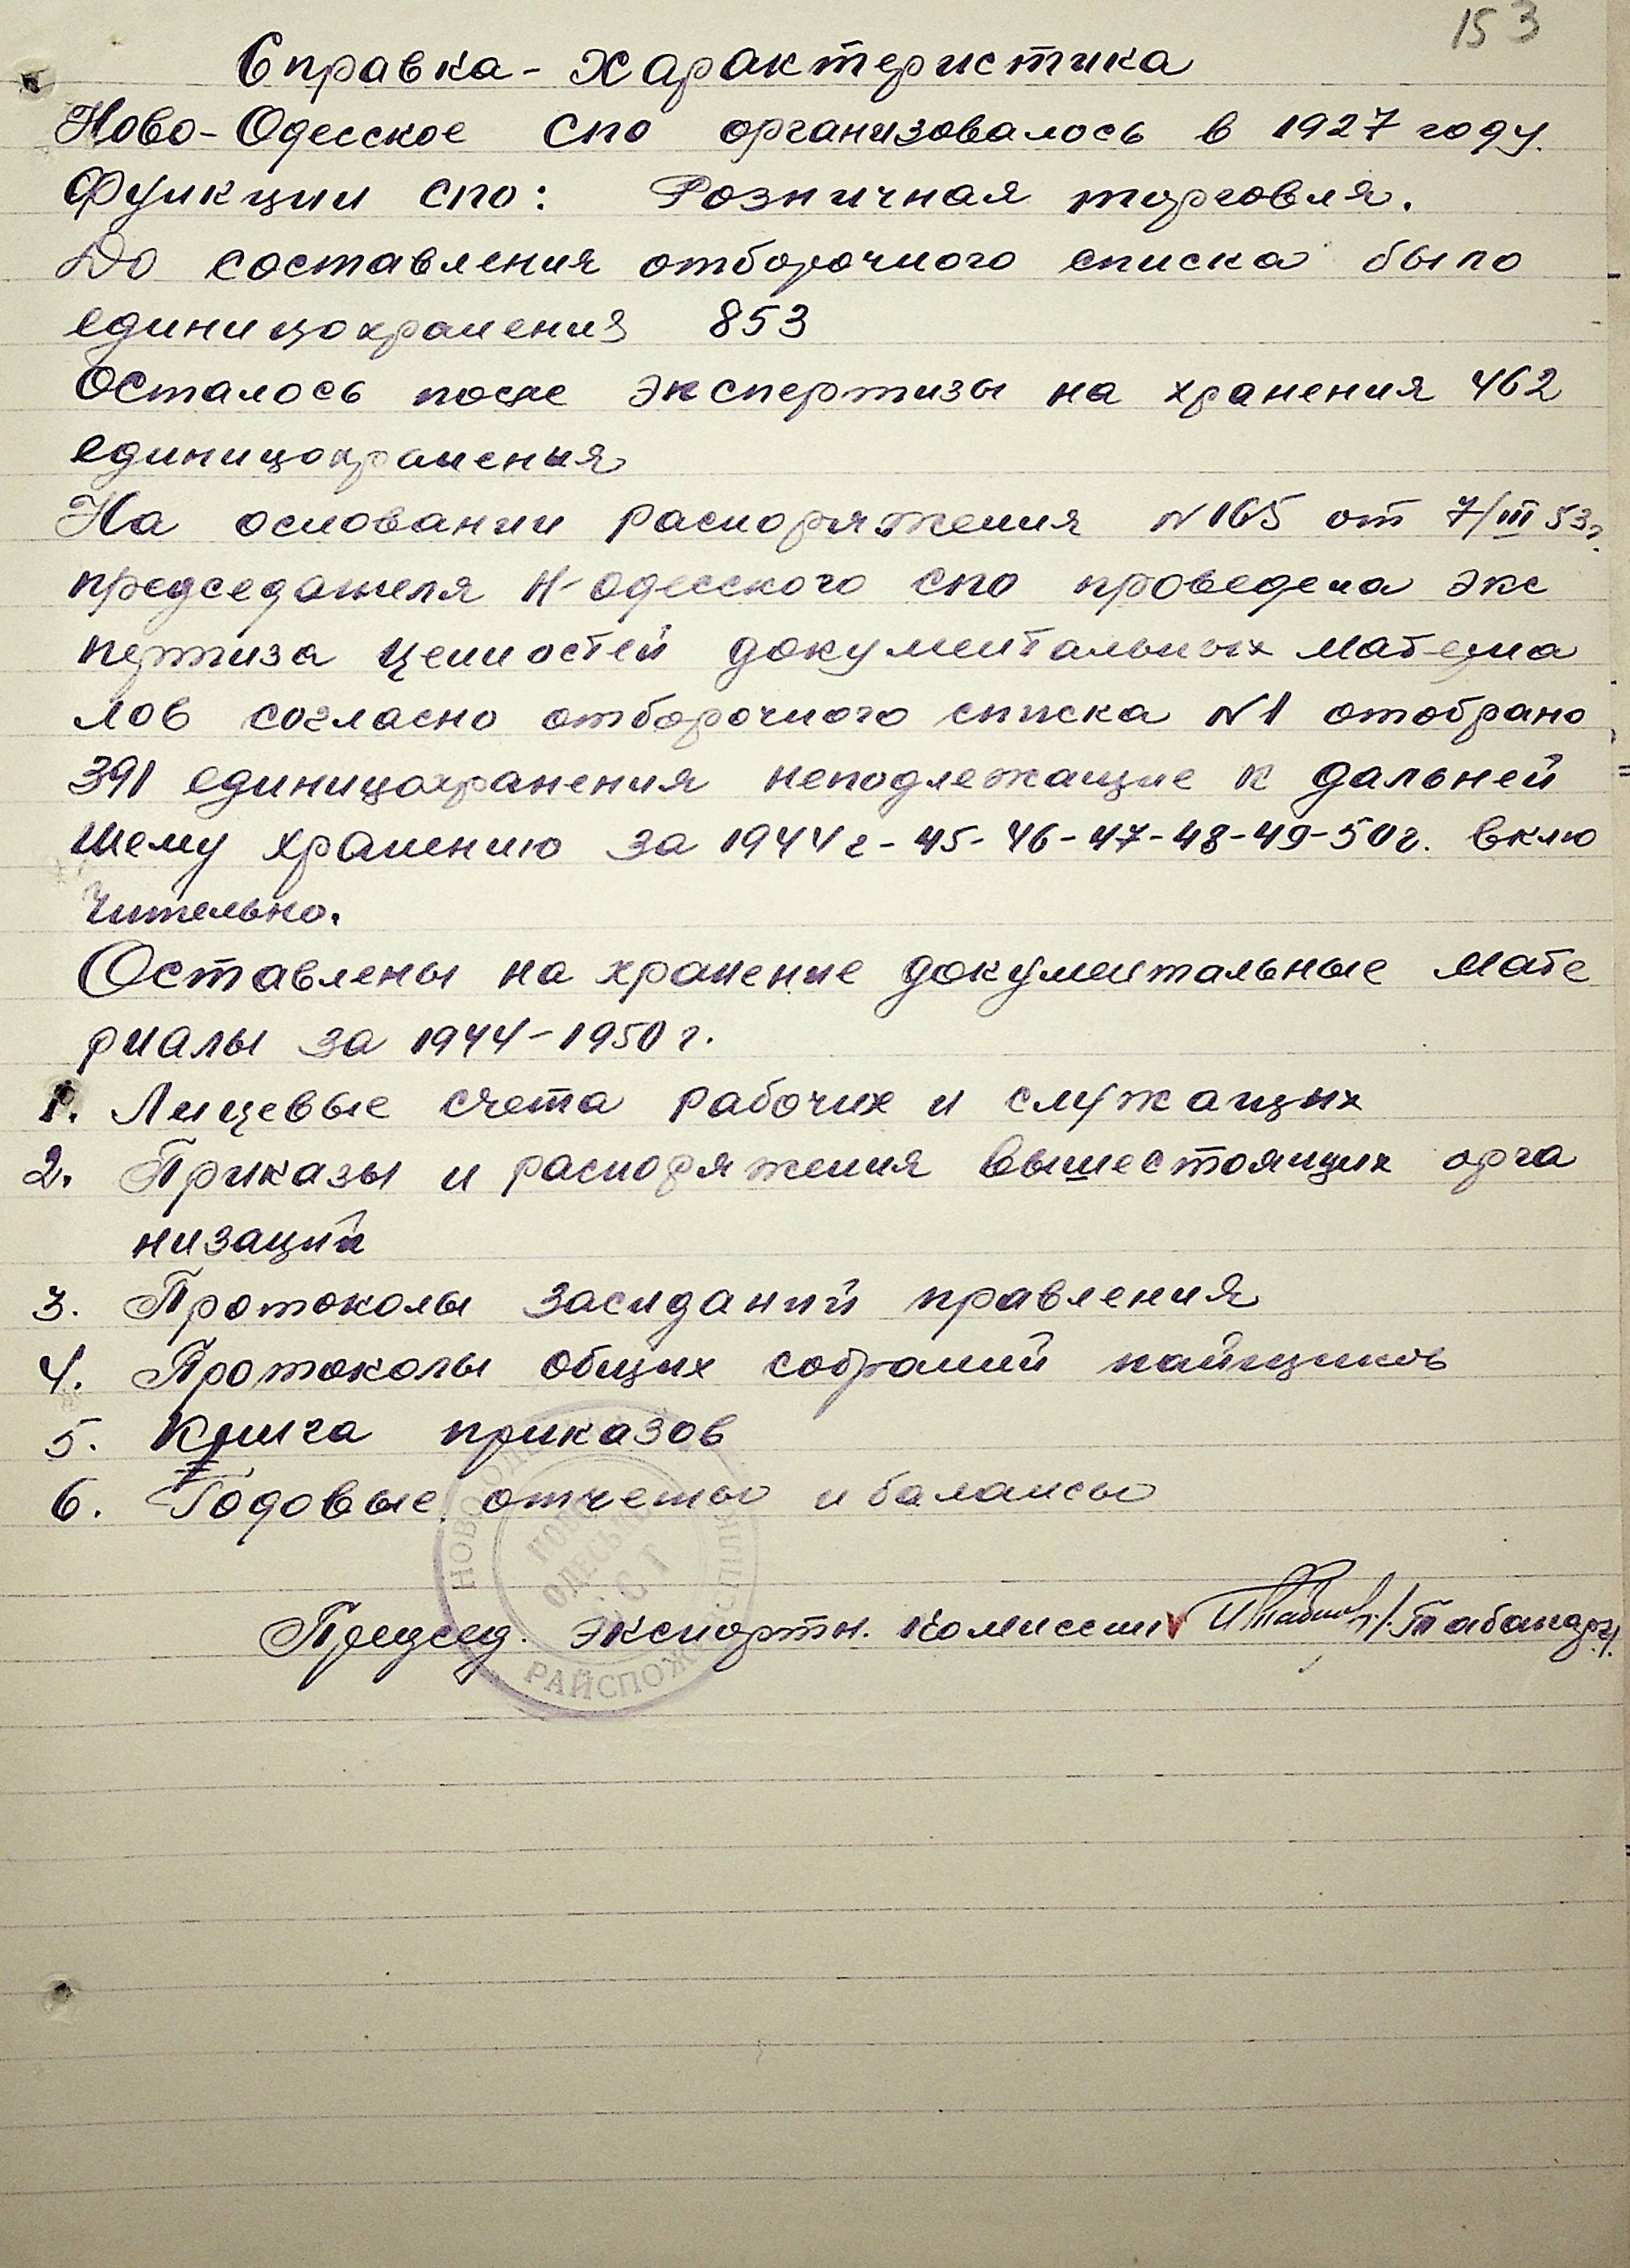 153
Справка - Характеристика
Ново-Одесское СПО организовалось в 1927 году.
Функции СПО: Розничная торговля.
До составления отборочного списка было
единицохранения 853
Осталось после экспертизы на хранения 462
единицохранения
На основании распоряжения №165 от 7/III 53г.
председателя Н-Одесского СПО проведена экс
пертиза ценностей документальных материа
лов согласно отборочного списка №1 отобрано
391 единицохранения неподлежащие к дальней
шему хранению за 1944г-45-46-47-48-49-50г. вклю
чительно.
Оставлены на хранение документальные мате
риалы за 1944-1950г.
1. Лицевые счета рабочих и служащых
2. Приказы и распоряжения вышестоящих орга
низаций
3. Протоколы заседаний правления
4. Протоколы общих собраний пайщиков
5. Книга приказов
6. Годовые отчеты и балансы
Председ. Экспортн. Комиссии
НОВО
ОДЕСЬКЕ
РАЙСПОЖ